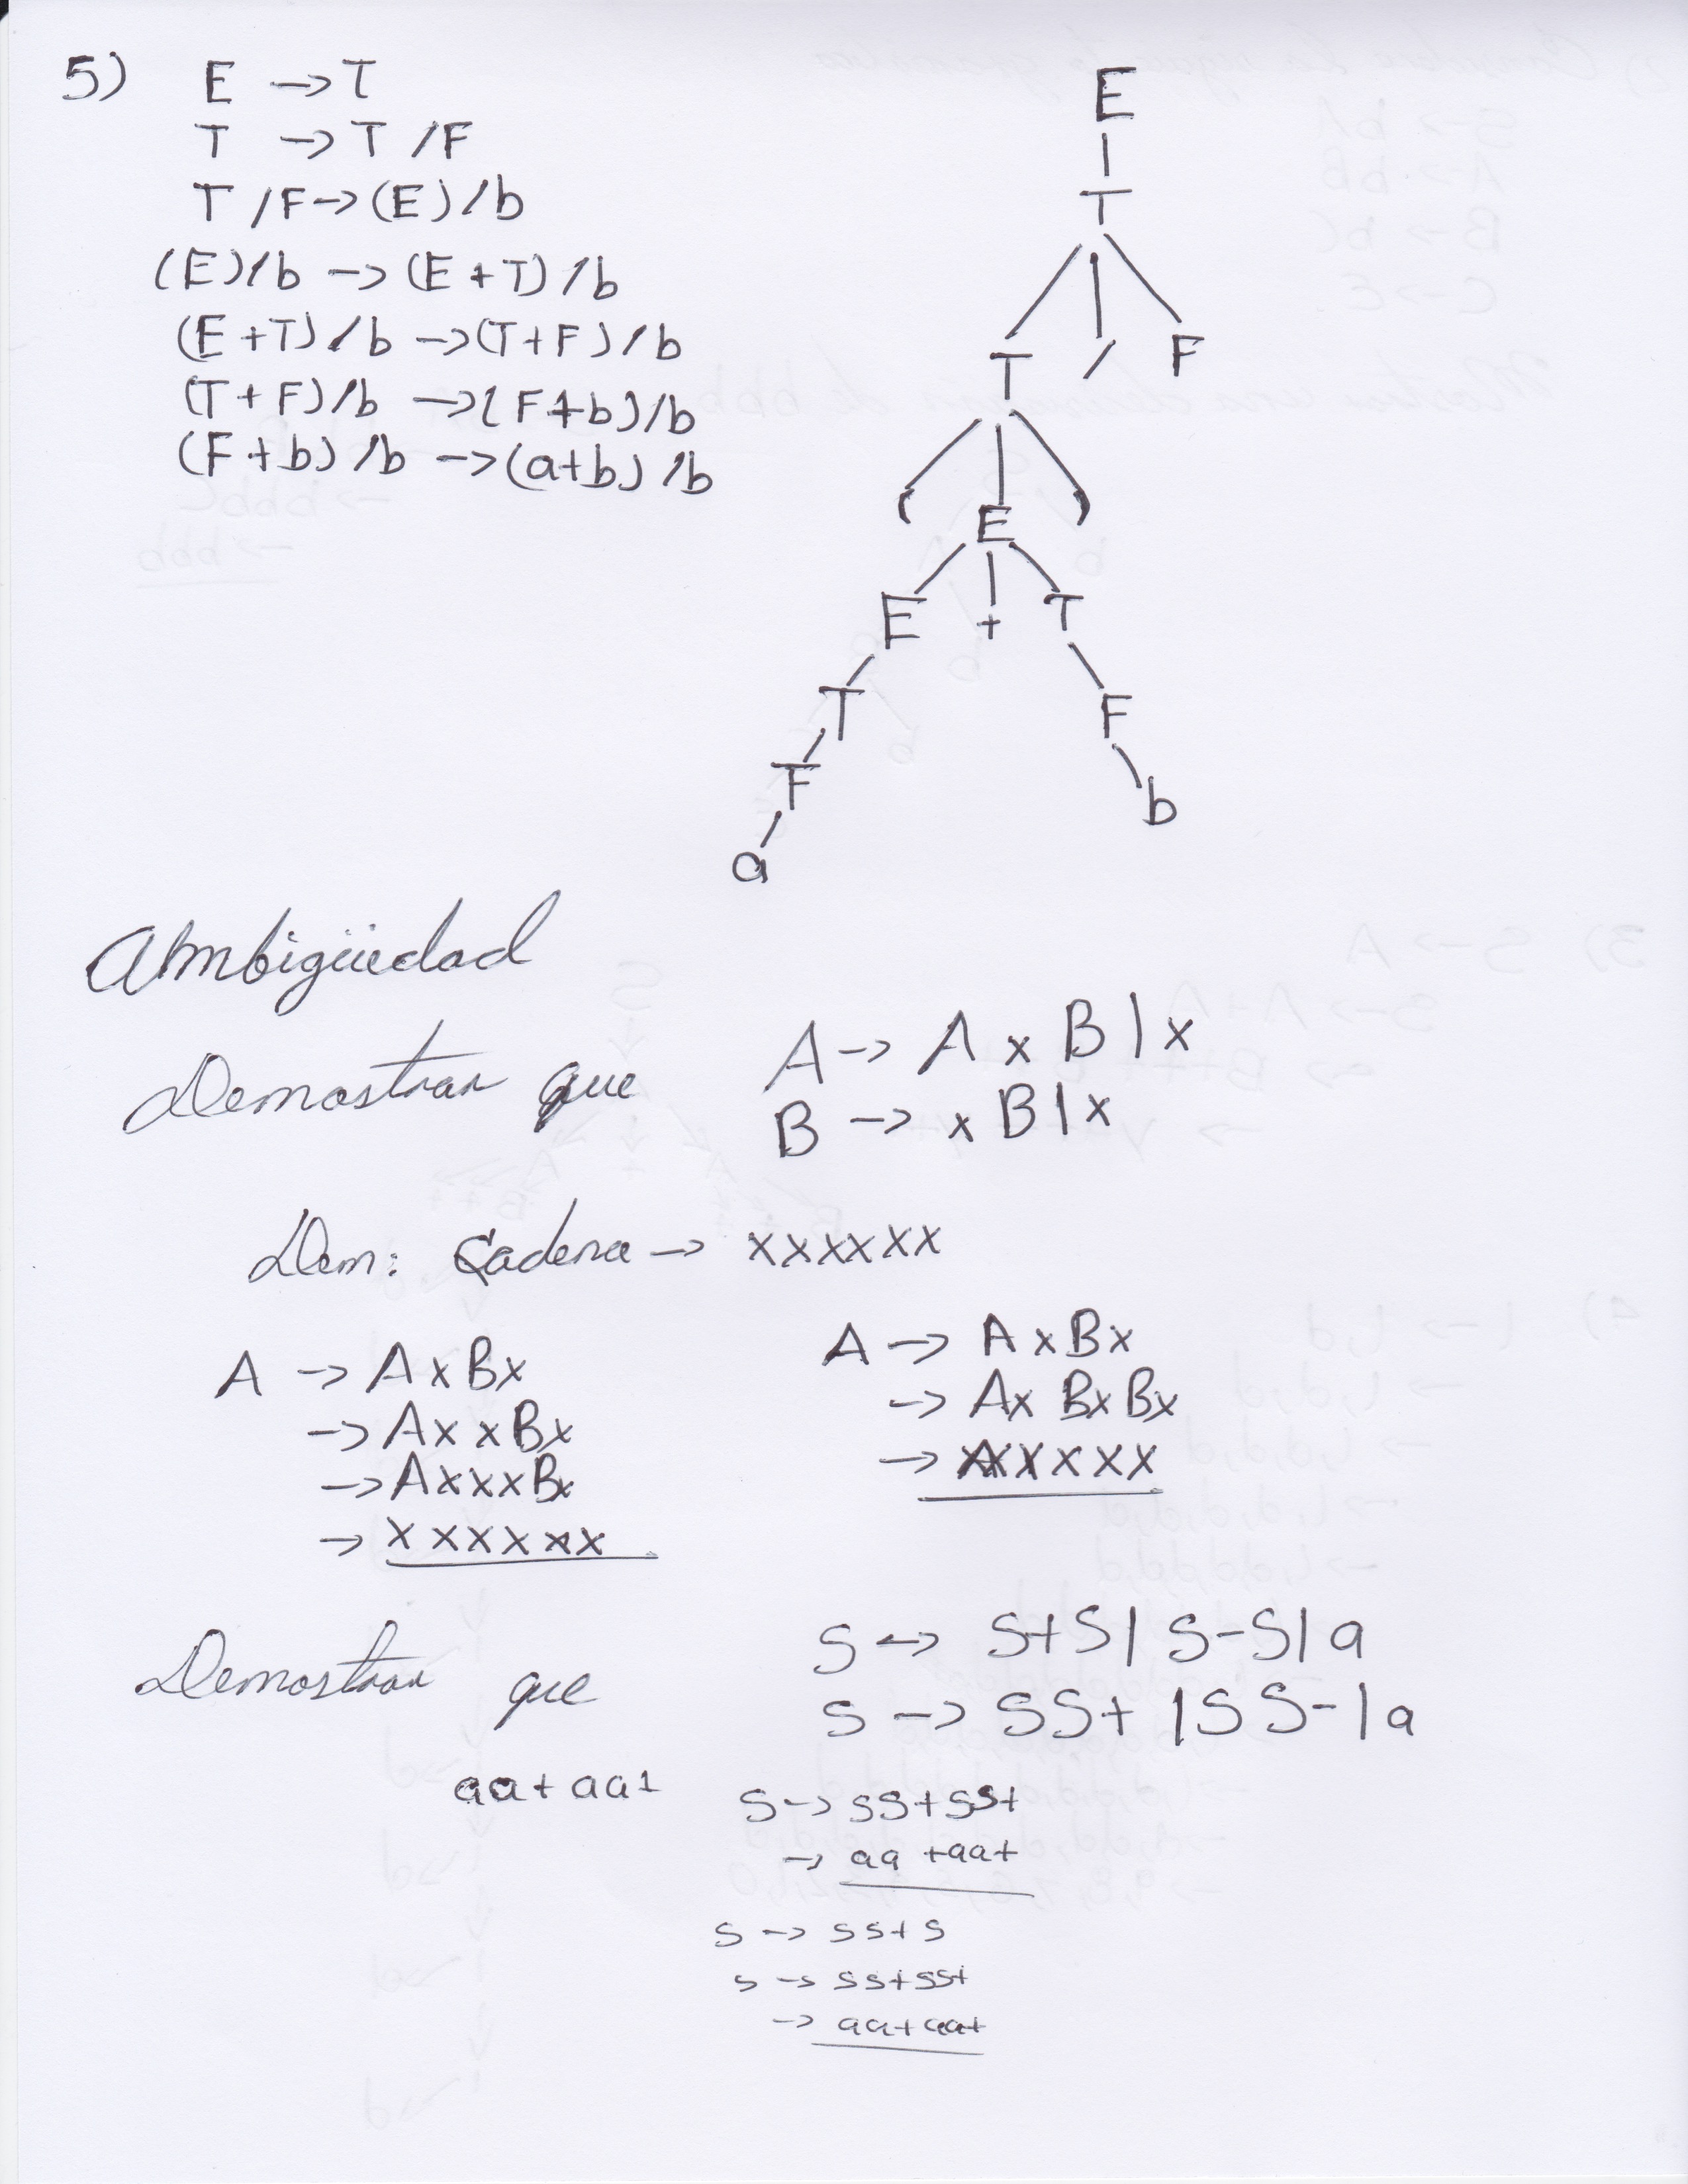 5)
E → T
T → T /F
T /F → (E) /b
(E)/b → (E + T) /b
(E +T) /b → (T+F) /b
(T + F)/b → (F+b)/b
(F + b) /b → (a+b) /b
E
T
T / F
( E )
E + T
T F
F b
a
Ambigüedad
Demostrar que
A → A x B | x
B → x B | x
Dem: Cadena → xxxxxx
A → A x Bx
→ Ax x Bx
→ A x x x Bx
→ x x x x x x
A → A x Bx
→ Ax Bx Bx
→ x x x x x
Demostrar que
S → S+S | S-S | a
S → SS+ | SS- | a
aa+ aa+
S → SS+SS+
→ aa +aa+
S → SS+ S
S → SS+SS+
→ aa+aa+